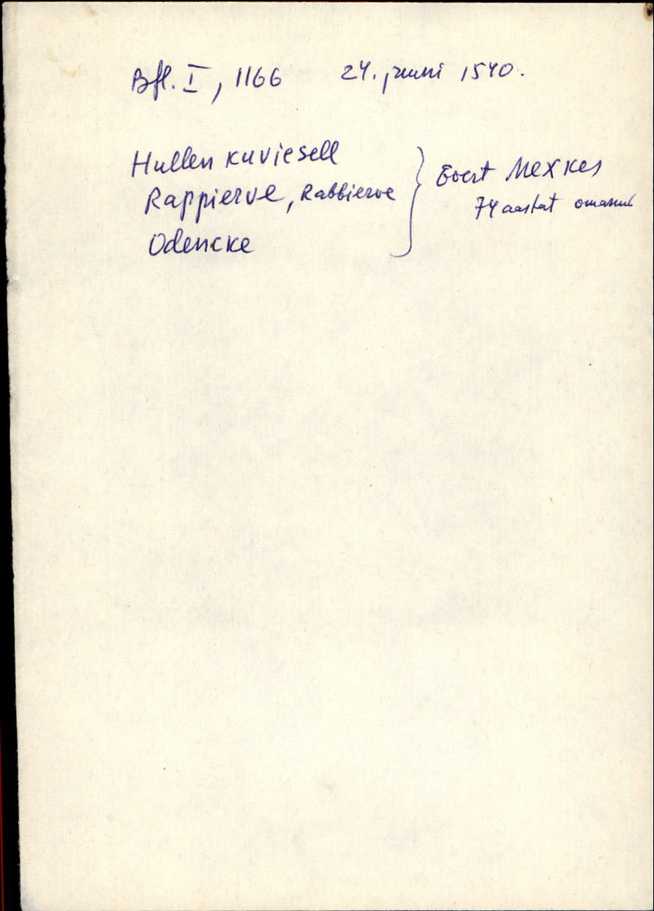 Bfl. I, 1166 24. juuni 1540.
Hullen kuviesell
Rappierve, Rabbierve
Odencke
} Evert Mexkes
74 aastat omanud